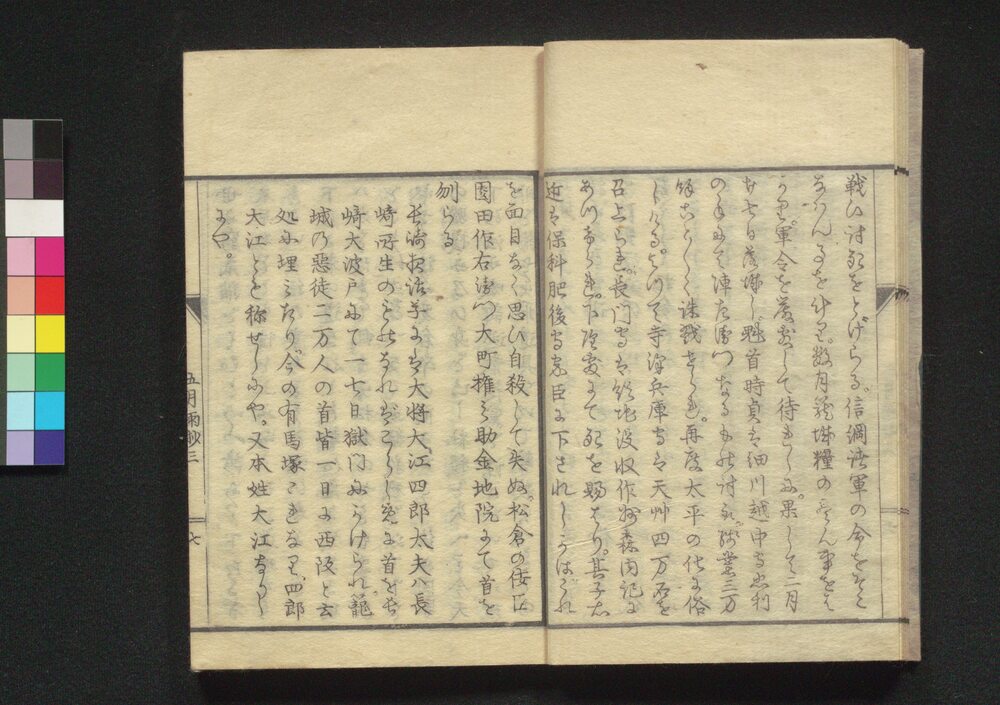 戦ひ討死をとげらる。信綱諸軍の命をそこ
なはん事を斗り。数月籠城糧の尽ん事を
うかゞひ。軍令を厳密にして待れしに。果して二月
廿七日落城し。魁首時貞は細川越中守忠利
の手にて陣左衛門なるもの討取。残党二万
余ことごとく誅戮せられ。再度太平の化に俗
しける。よつて寺沢兵庫守は天艸四万石を
召上られ。長門守は領地没収作州森内記に
あづけられ。下隠處にて死を賜はり。其子右
近は保科肥後守家臣に下されしうはがれ
を面目なく思ひ自殺して失ぬ。松倉の佞臣
園田作右衛門大町権之助金地院にて首を
刎らる
長崎夜話草には大将大江四郎太夫ハ長
崎所生のものなればこらしめに首を長
崎大波戸にて一七日獄門にかけられ。籠
城乃惡徒二万人の首皆一日に西阪と云
処に埋ミたり。今の有馬塚これなり。四郎
大江とも称せしにや。又本姓大江なりし
にや。
五月雨抄三
七